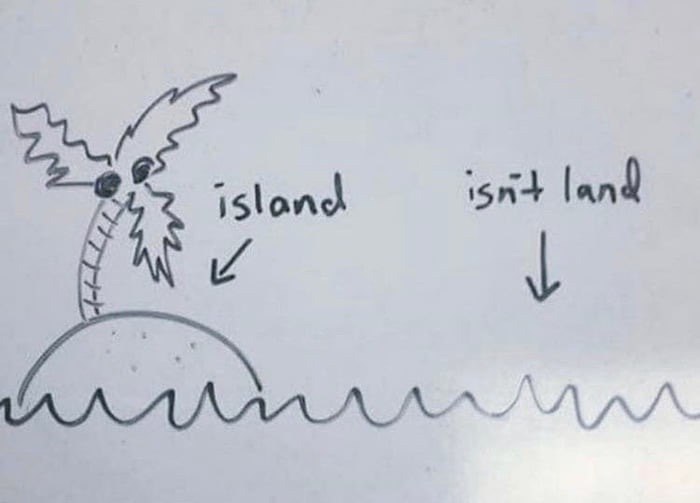 island
isn't land